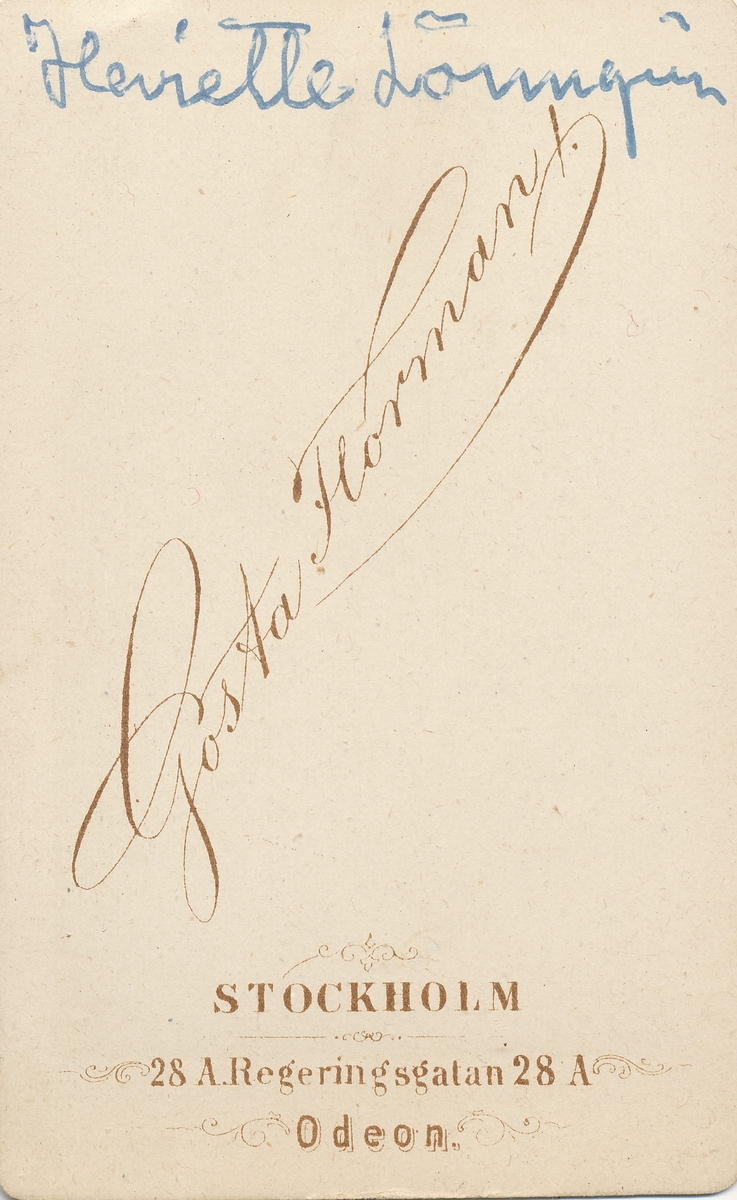 Henriette Lönngren
Gösta Florman.
STOCKHOLM
28 A. Regeringsgatan 28 A
Odeon.